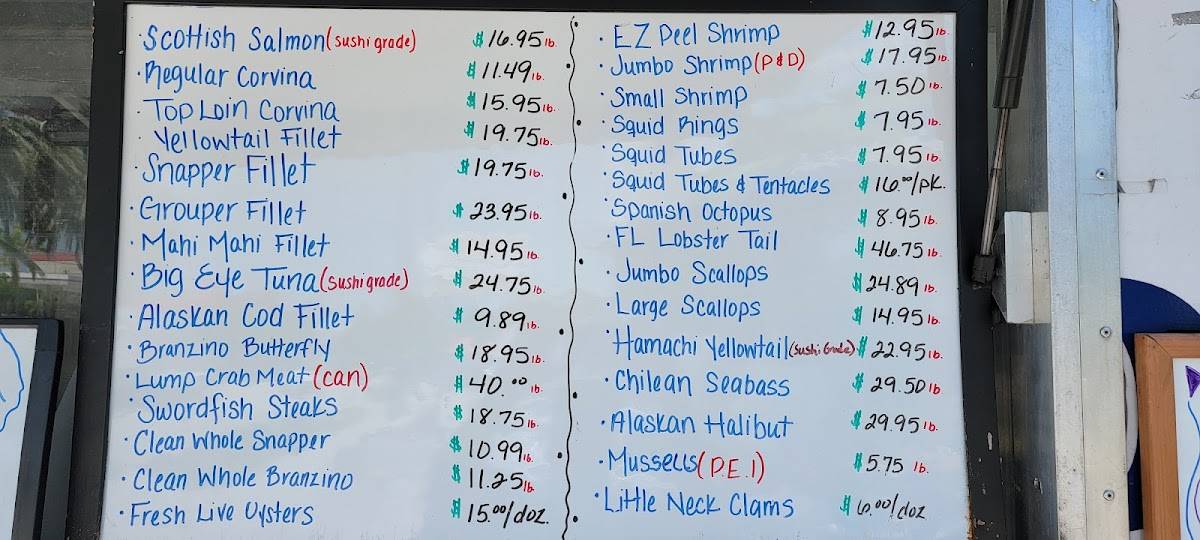 · Scottish Salmon (sushi grade) $16.95 lb.
· Regular Corvina $11.49 lb.
· Top Loin Corvina $15.95 lb.
· Yellowtail Fillet $19.75 lb.
· Snapper Fillet $19.75 lb.
· Grouper Fillet $23.95 lb.
· Mahi Mahi Fillet $14.95 lb.
· Big Eye Tuna (sushi grade) $24.75 lb.
· Alaskan Cod Fillet $9.89 lb.
· Branzino Butterfly $18.95 lb.
· Lump Crab Meat (can) $40.00 lb.
· Swordfish Steaks $18.75 lb.
· Clean Whole Snapper $10.99 lb.
· Clean Whole Branzino $11.25 lb.
· Fresh Live Oysters $15.00/doz.
· EZ Peel Shrimp $12.95 lb.
· Jumbo Shrimp (P&D) $17.95 lb.
· Small Shrimp $7.50 lb.
· Squid Rings $7.95 lb.
· Squid Tubes $7.95 lb.
· Squid Tubes & Tentacles $16.00/pk.
· Spanish Octopus $8.95 lb.
· FL Lobster Tail $46.75 lb.
· Jumbo Scallops $24.89 lb.
· Large Scallops $14.95 lb.
· Hamachi Yellowtail (sushi Grade) $22.95 lb.
· Chilean Seabass $29.50 lb
· Alaskan Halibut $29.95 lb.
· Mussells (P.E.I) $5.75 lb.
· Little Neck Clams $6.00/doz